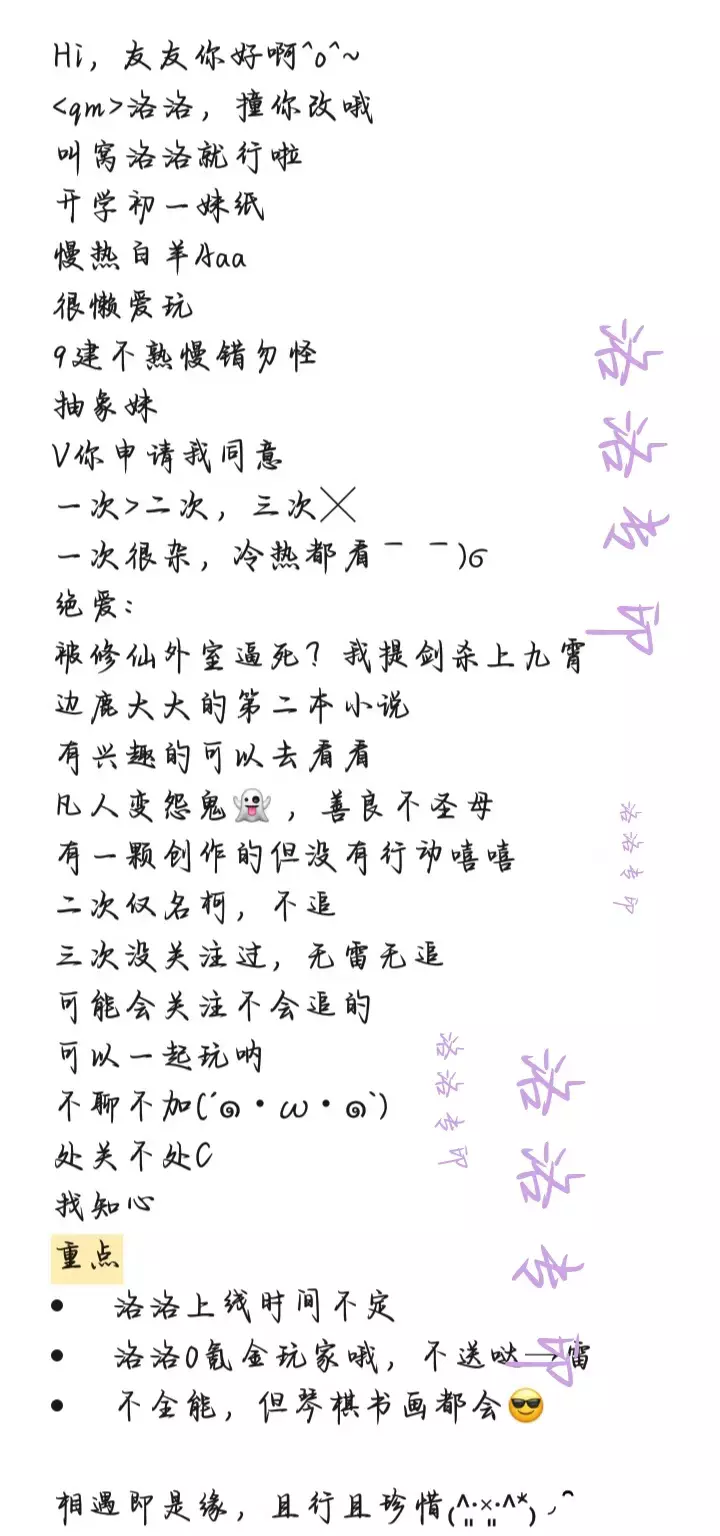 Hi，友友你好啊^o^~
<qm>洛洛，撞你改哦
叫窝洛洛就行啦
开学初一妹纸
慢热白羊Aaa
很懒爱玩
9建不熟慢错勿怪
抽象妹
V你申请我同意
一次>二次，三次╳
一次很杂，冷热都看￣ ￣)σ
绝爱：
被修仙外室逼死？我提剑杀上九霄
边鹿大大的第二本小说
有兴趣的可以去看看
凡人变怨鬼👻，善良不圣母
有一颗创作的但没有行动嘻嘻
二次仅名柯，不追
三次没关注过，无雷无追
可能会关注不会追的
可以一起玩呐
不聊不加(´๑•ω•๑`)
处关不处C
找知心
重点
• 洛洛上线时间不定
• 洛洛0氪金玩家哦，不送哒→雷
• 不全能，但琴棋书画都会😎
相遇即是缘，且行且珍惜(^._.×._.^*)◞⌒
洛洛专印
洛洛专印
洛洛专印
洛洛专印